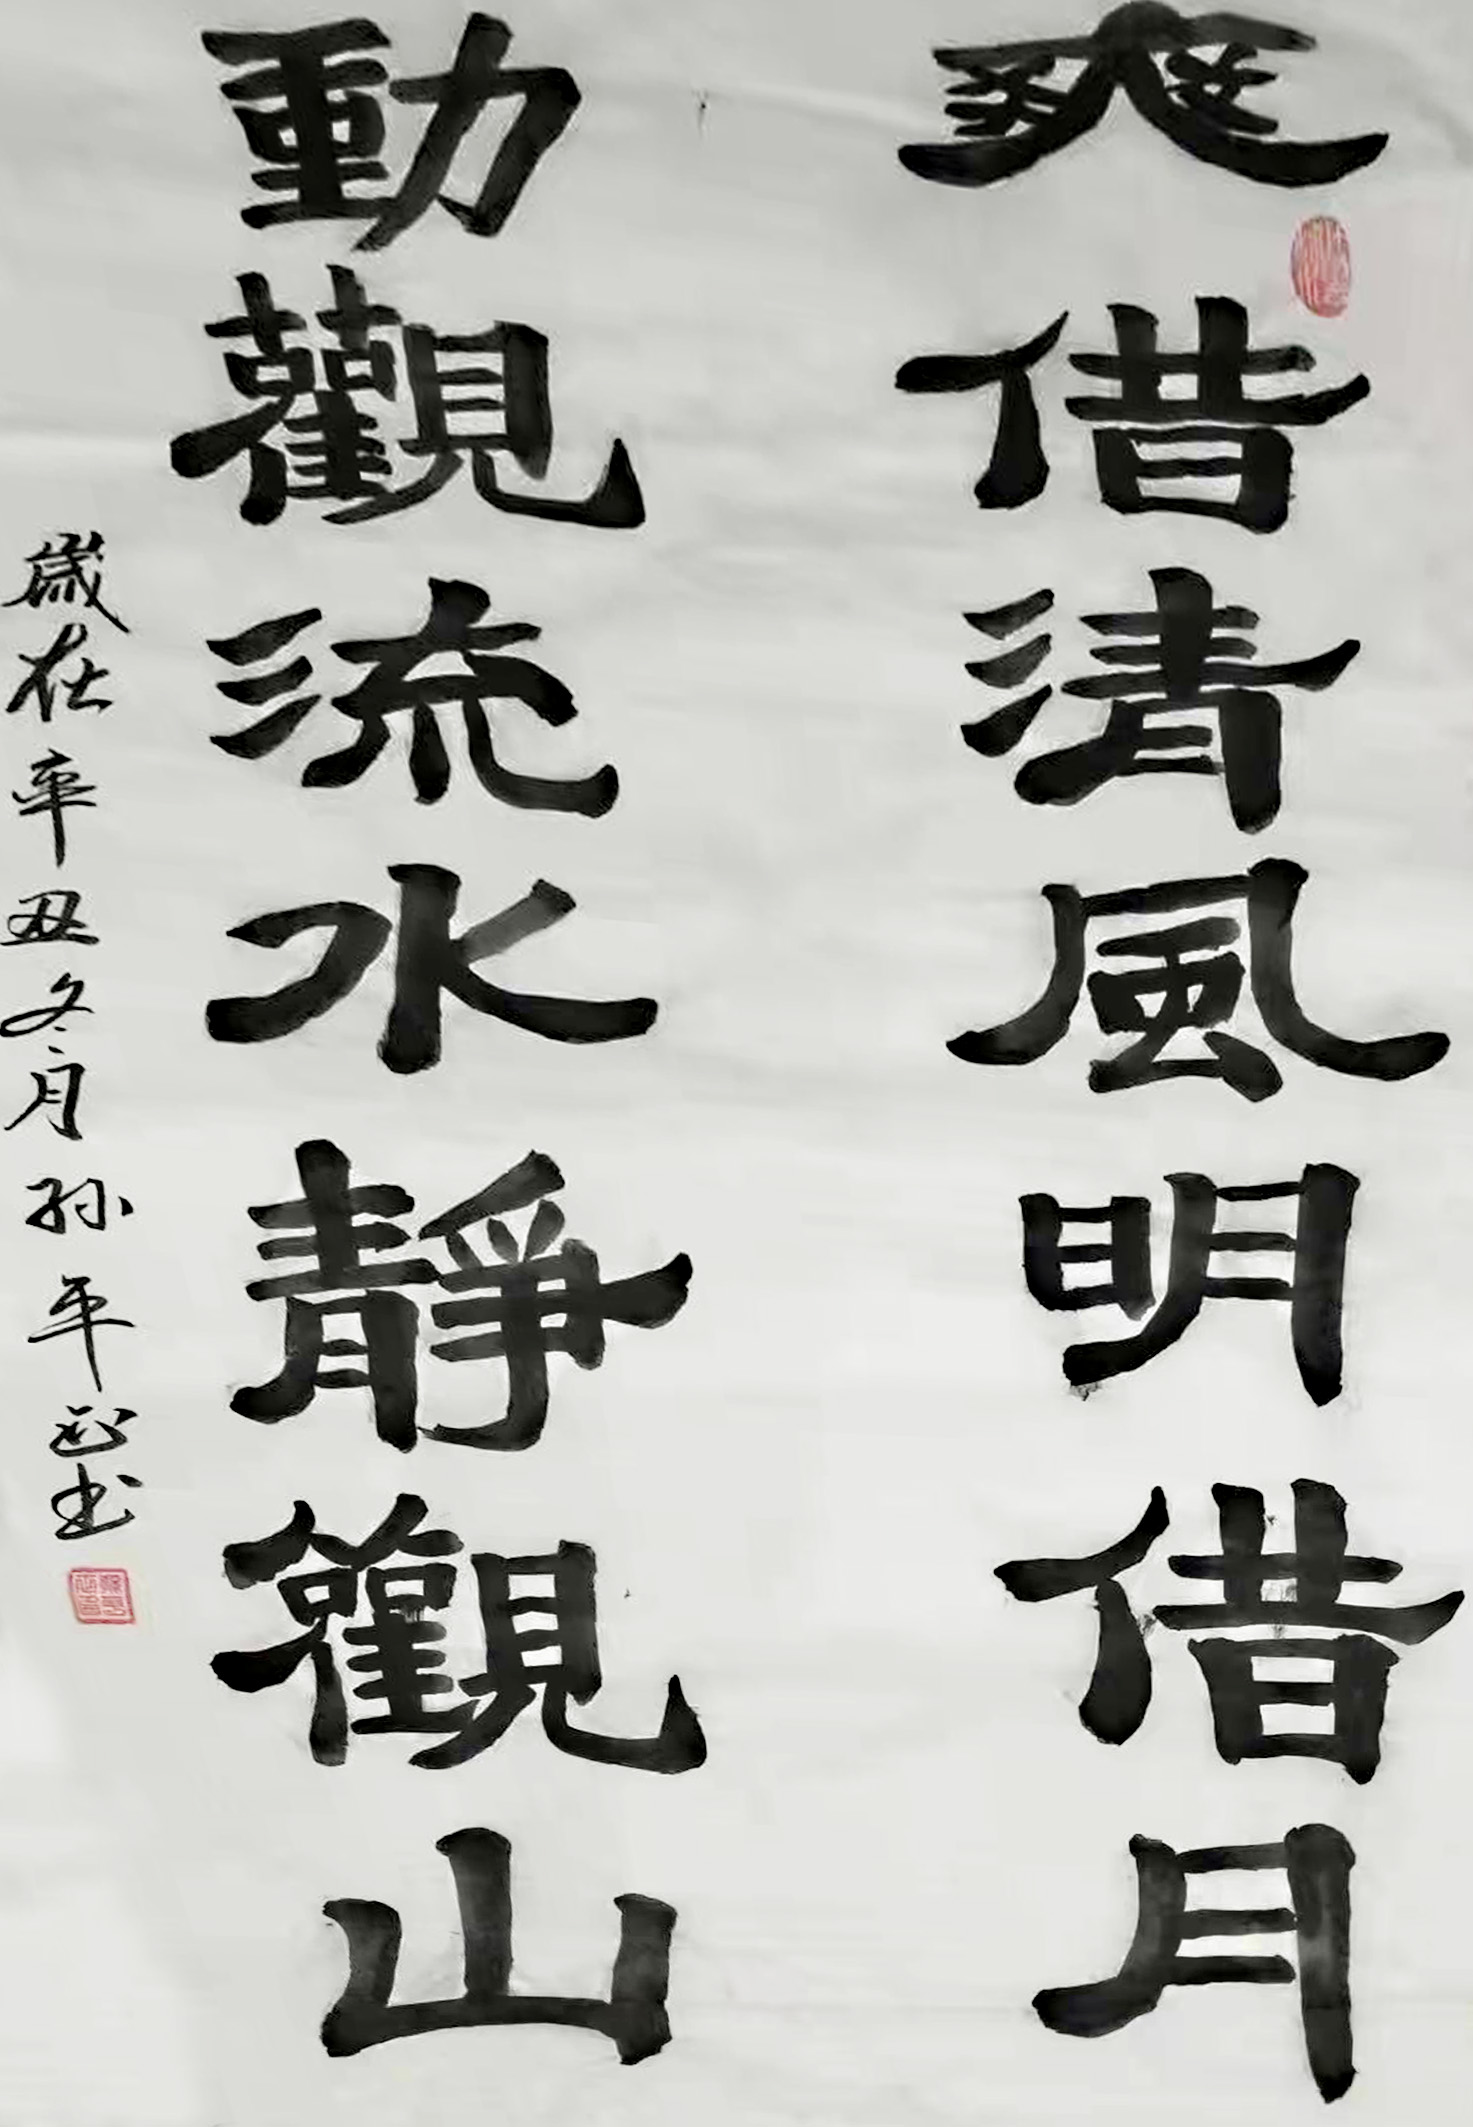 爽借清風明借月
動觀流水靜觀山
歲在辛丑冬月孙平書